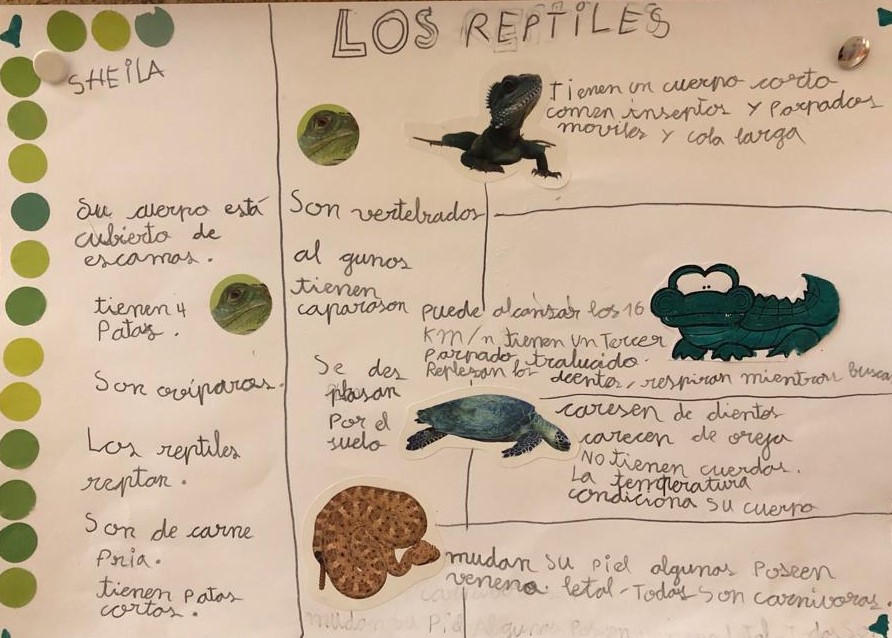 LOS REPTILES
SHEILA
Su cuerpo está
cubierto de
escamas.
tienen 4
Patas.
Son ovíparos.
Los reptiles
reptan.
Son de carne
Fria.
tienen patas
cortas.
Son vertebrados
al gunos
tienen
caparoson
Se des
plasan
Por el
suelo
tienen un cuerpo corto
comen inseptos y Parpados
moviles y cola larga
puede alcansar los 16
KM/n tienen un Tercer
Parpado, tralucido.
Replesan los dientes, respiran mientras busca
caresen de dientes
carecen de oreja
NO tienen cuerdas.
La temperatura
condiciona su cuerpo
mudan su piel algunas Poseen
veneno letal-Todas Son carnivoras.